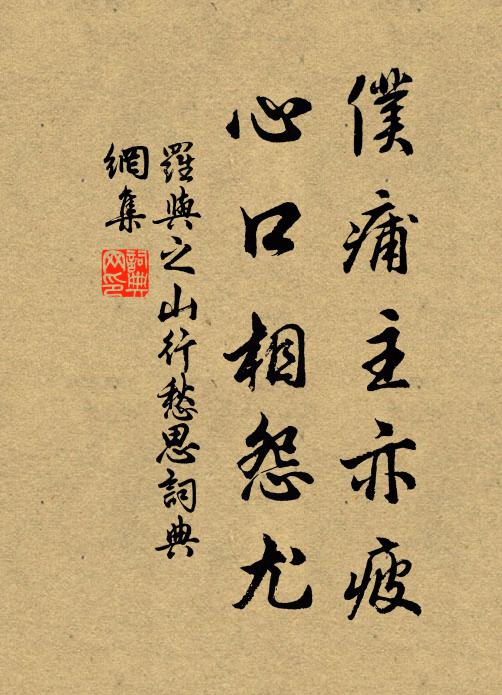 僕痡主亦疲
心口相怨尤
羅與之山行愁思詞典
網集
詞典
网印